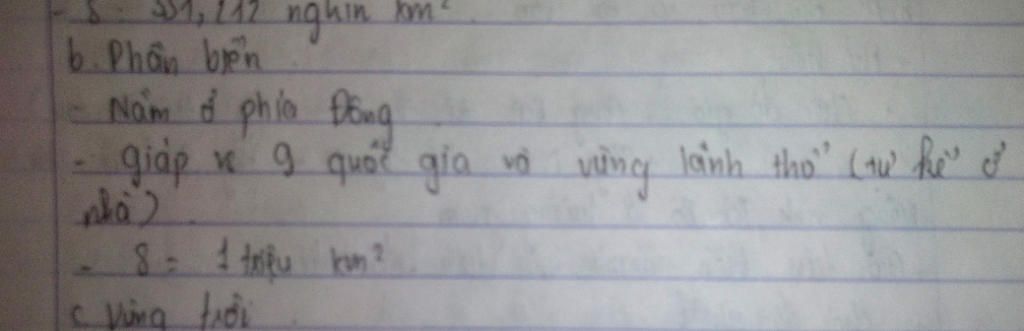 - S: 331,212 nghìn km²
b. Phần biển
- Nằm ở phía Đông
- giáp vs 9 quốc gia và vùng lãnh thổ (tự kể ở
nhà)
- S = 1 triệu km²
c. Vùng trời